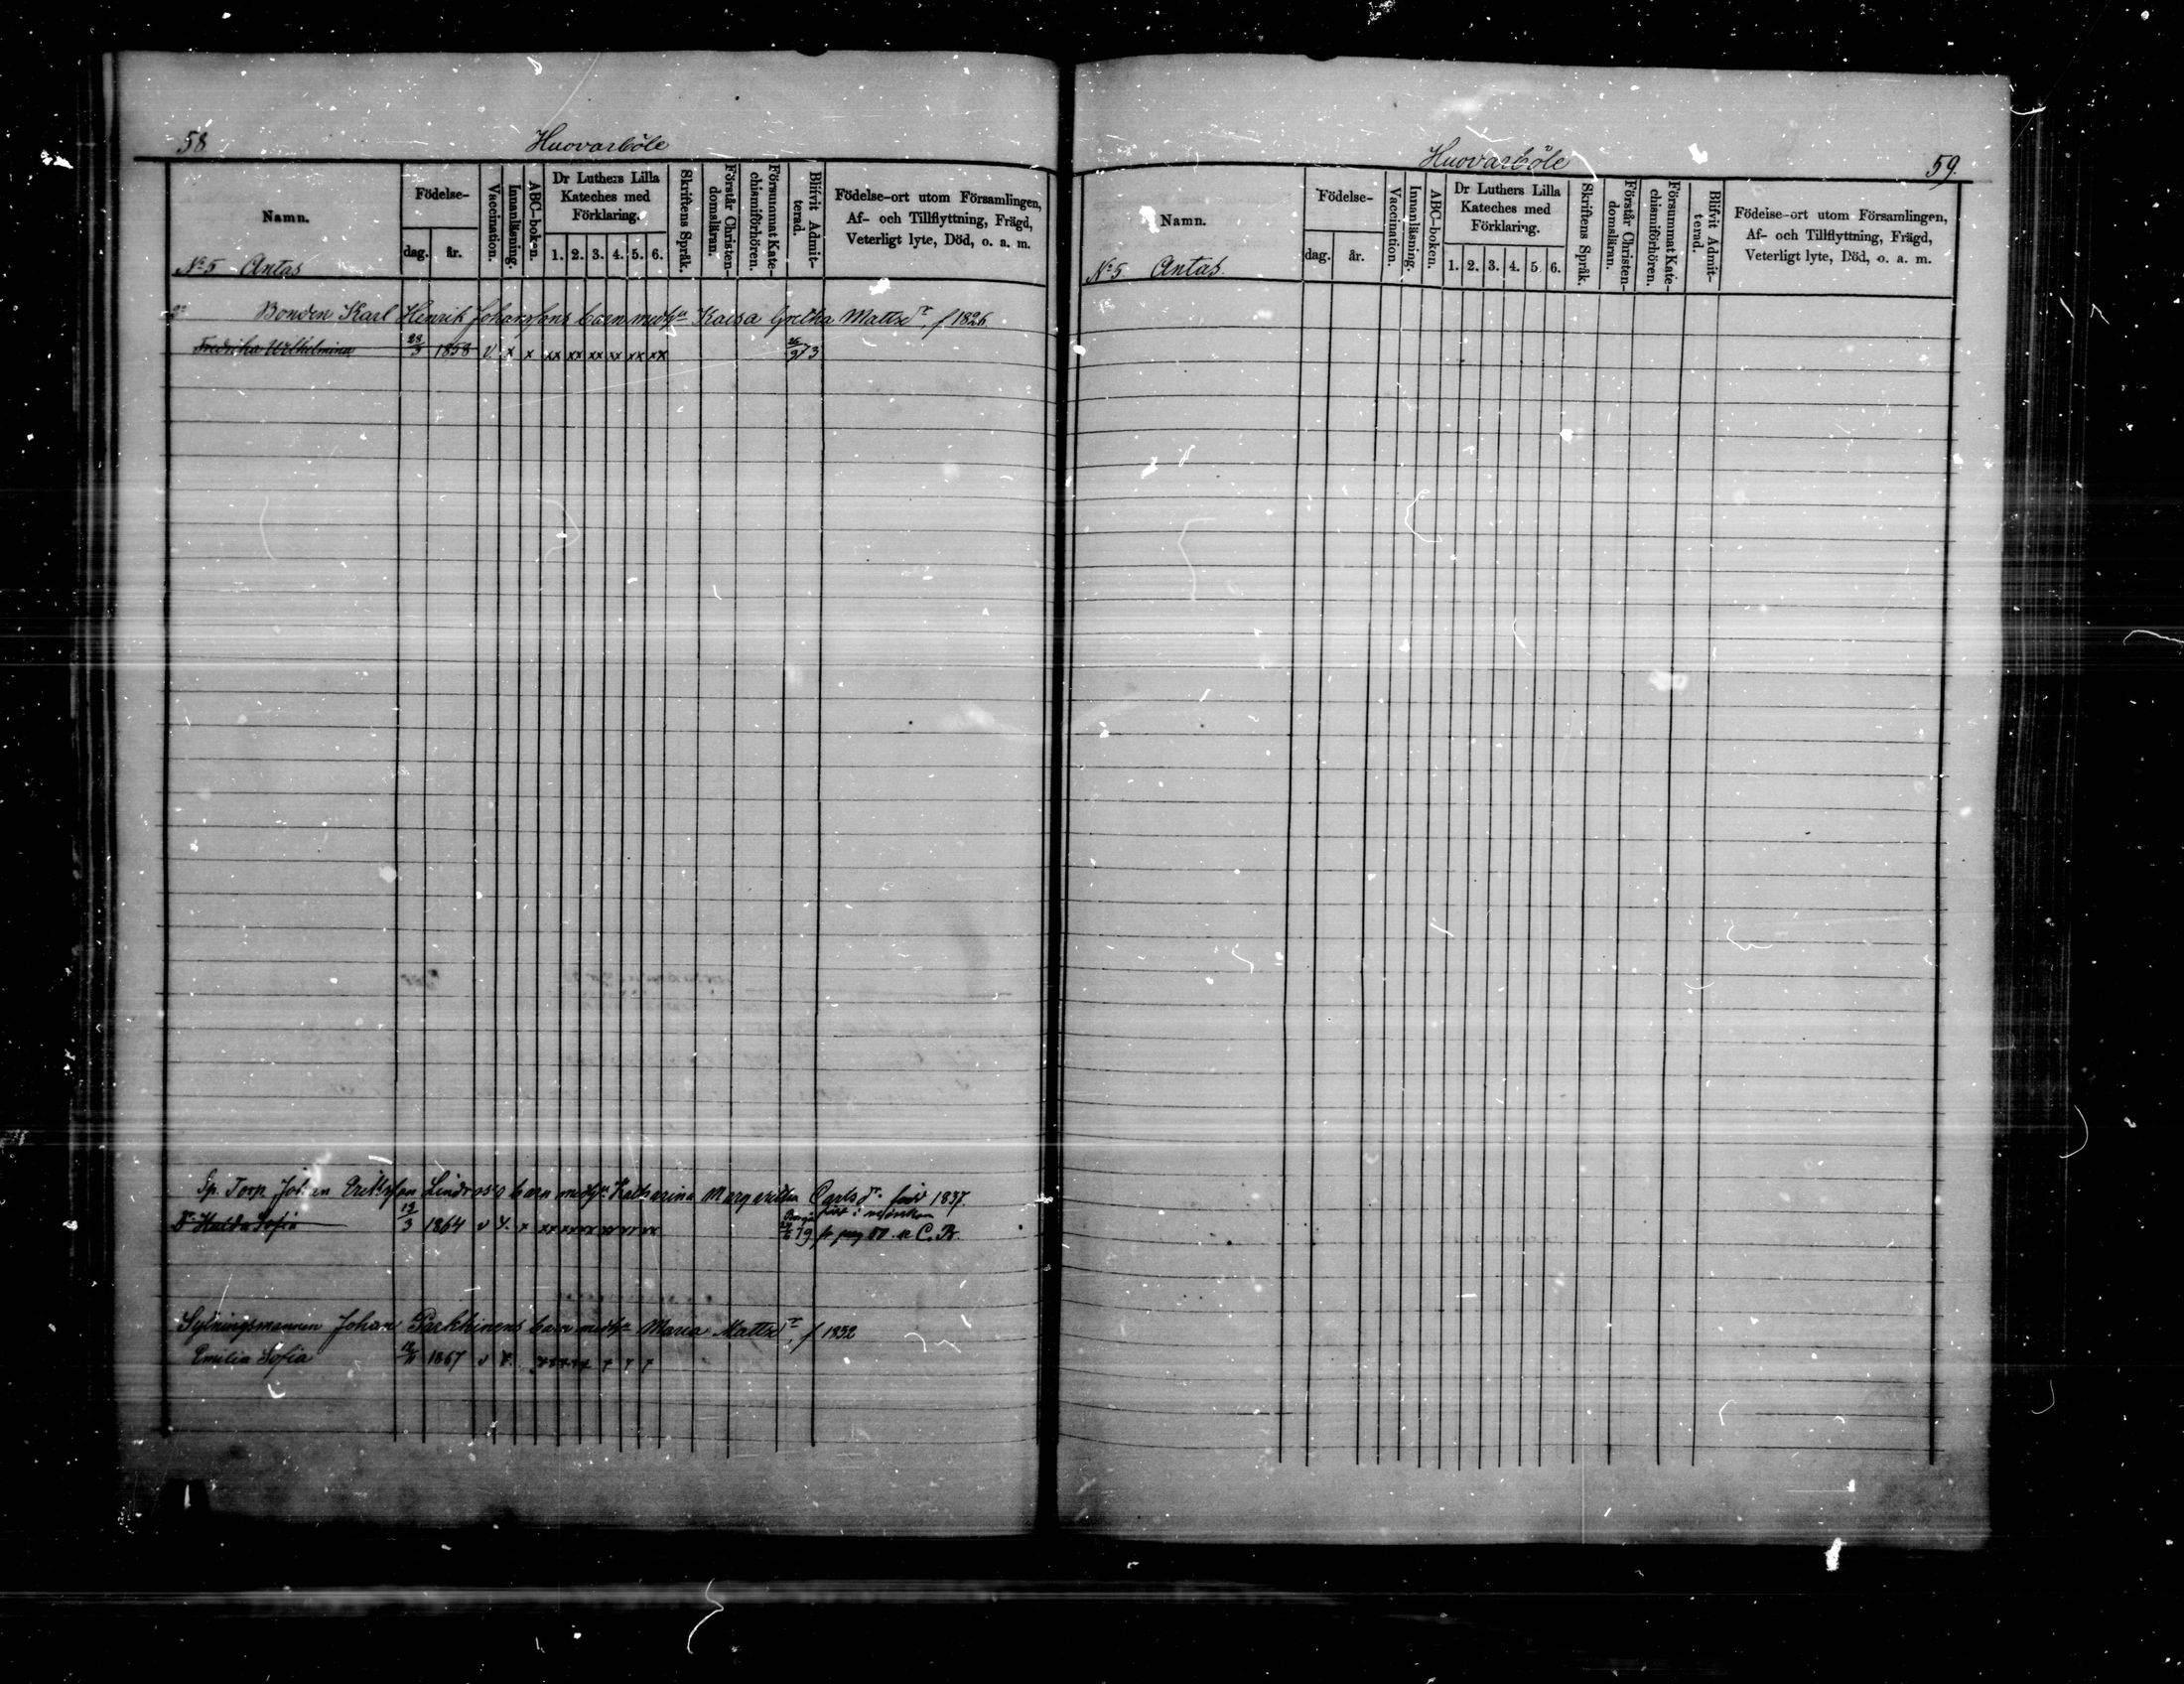 58.
Huovarböle
Namn.
Födelse-
dag.
år.
Vaccination.
Innanläsning.
ABC-boken.
Dr Luthers Lilla
Kateches med
Förklaring.
1. 2. 3. 4. 5. 6.
Skriftens Språk.
Förstår Christen-
domsläran.
Försummat Kate-
chismiförhören.
Blifvit Admit-
terad.
Födelse-ort utom Församlingen,
Af- och Tillflyttning, Frägd,
Veterligt lyte, Död, o. a. m.
No 5 Antas
Bonden Karl Henrik Johanssons barn med hu Kaisa Gretha Mattsdr, f 1826
Fredrika Wilhelmina 28/3 1858 v x x xx xx xx xx xx xx 73
Sp. Torp Johan Eriksson Lindroos's barn med hu Katharina Margaretha Carlsdr. född 1837.
Dr Hulda Sofia 19/3 1864 v x x xx xx xx xx xx xx Borgå 79 C. B.
Sytningsmannen Johan Parkkinens barn med hu Maria Mattsdr, f 1832
Emilia Sofia 1867 v x
Huovarböle
59.
Namn.
Födelse-
dag.
år.
Vaccination.
Innanläsning.
ABC-boken.
Dr Luthers Lilla
Kateches med
Förklaring.
1. 2. 3. 4. 5. 6.
Skriftens Språk.
Förstår Christen-
domsläran.
Försummat Kate-
chismiförhören.
Blifvit Admit-
terad.
Födelse-ort utom Församlingen,
Af- och Tillflyttning, Frägd,
Veterligt lyte, Död, o. a. m.
No 5 Antas.